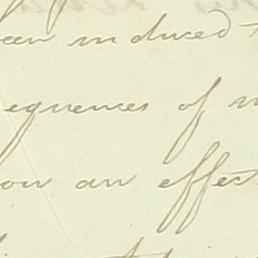 een induced
equences of
on an effec